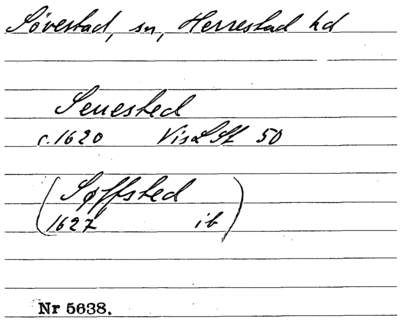 Sövestad, sn, Herrestad hd
Seuested
c. 1620 VisLSt 50
(Søffsted
1627 ib)
Nr 5638.